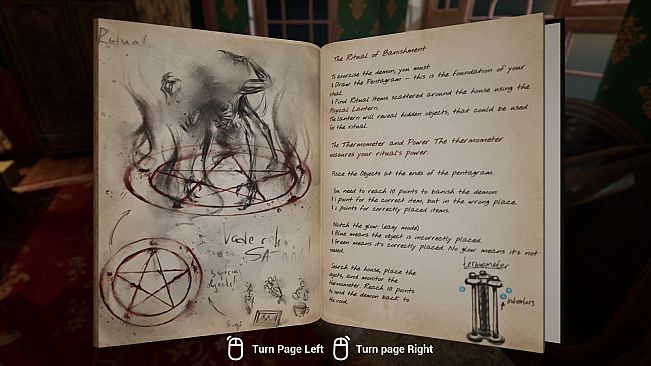 Ritual
Vade retro
SATANA
Special
objects!
The Ritual of Banishment
To exorcise the demon, you must:
1 Draw the Pentagram – this is the foundation of your
ritual.
1 Find Ritual Items scattered around the house using the
Psycal Lantern.
The lantern will reveal hidden objects, that could be used
in the ritual.
The Thermometer and Power The thermometer
measures your ritual's power.
Place the Objects at the ends of the pentagram.
You need to reach 10 points to banish the demon.
1 1 point for the correct item, but in the wrong place.
1 2 points for correctly placed items.
Watch the glow (easy mode)
1 Blue means the object is incorrectly placed
1 Green means it's correctly placed. No glow means it's not
needed.
Search the house, place the
objects, and monitor the
thermometer. Reach 10 points
to send the demon back to
the void.
termometer
indicators
Turn Page Left
Turn page Right